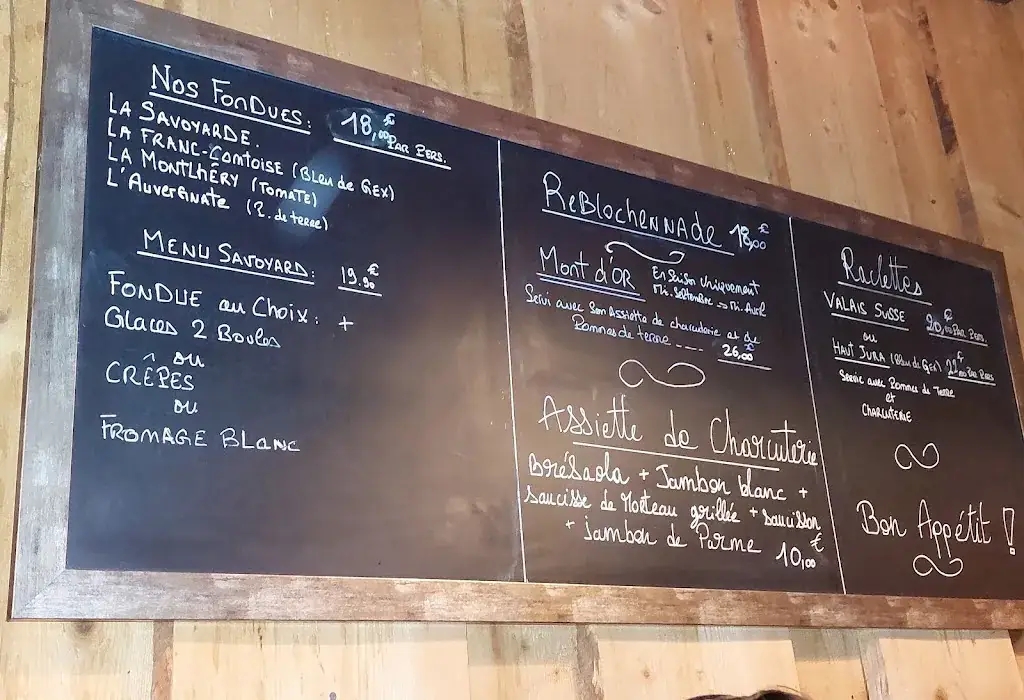 Nos FonDUES: 18,00€ PAR PERS.
LA SAVOYARDE.
LA FRANC-COMTOISE (BLEU de GEX)
LA MONTLHÉRY (TOMATE)
L'AUVERGNATE (P. de terre)
MENU SAVOYARD: 19.90€
FONDUE au Choix: +
Glaces 2 Boules
ou
CRÊPES
ou
FROMAGE BLANC
ReBlochennade 18,00€
Mont d'OR En Saison Uniquement
Mi-Septembre → Mi-Avril
Servi avec Son Assiette de charcuterie et de
Pommes de terre ---- 26,00€
Assiette de Charcuterie
Brésaola + Jambon blanc +
Saucisse de Morteau grillée + saucisson
+ jambon de Parme 10,00€
Raclettes
VALAIS SUSSE 20,00€ PAR PERS.
ou
HAUT JURA (Bleu de Gex) 22,00€ PAR PERS
Servie avec Pommes de Terre
et
CHARCUTERIE
Bon Appétit!